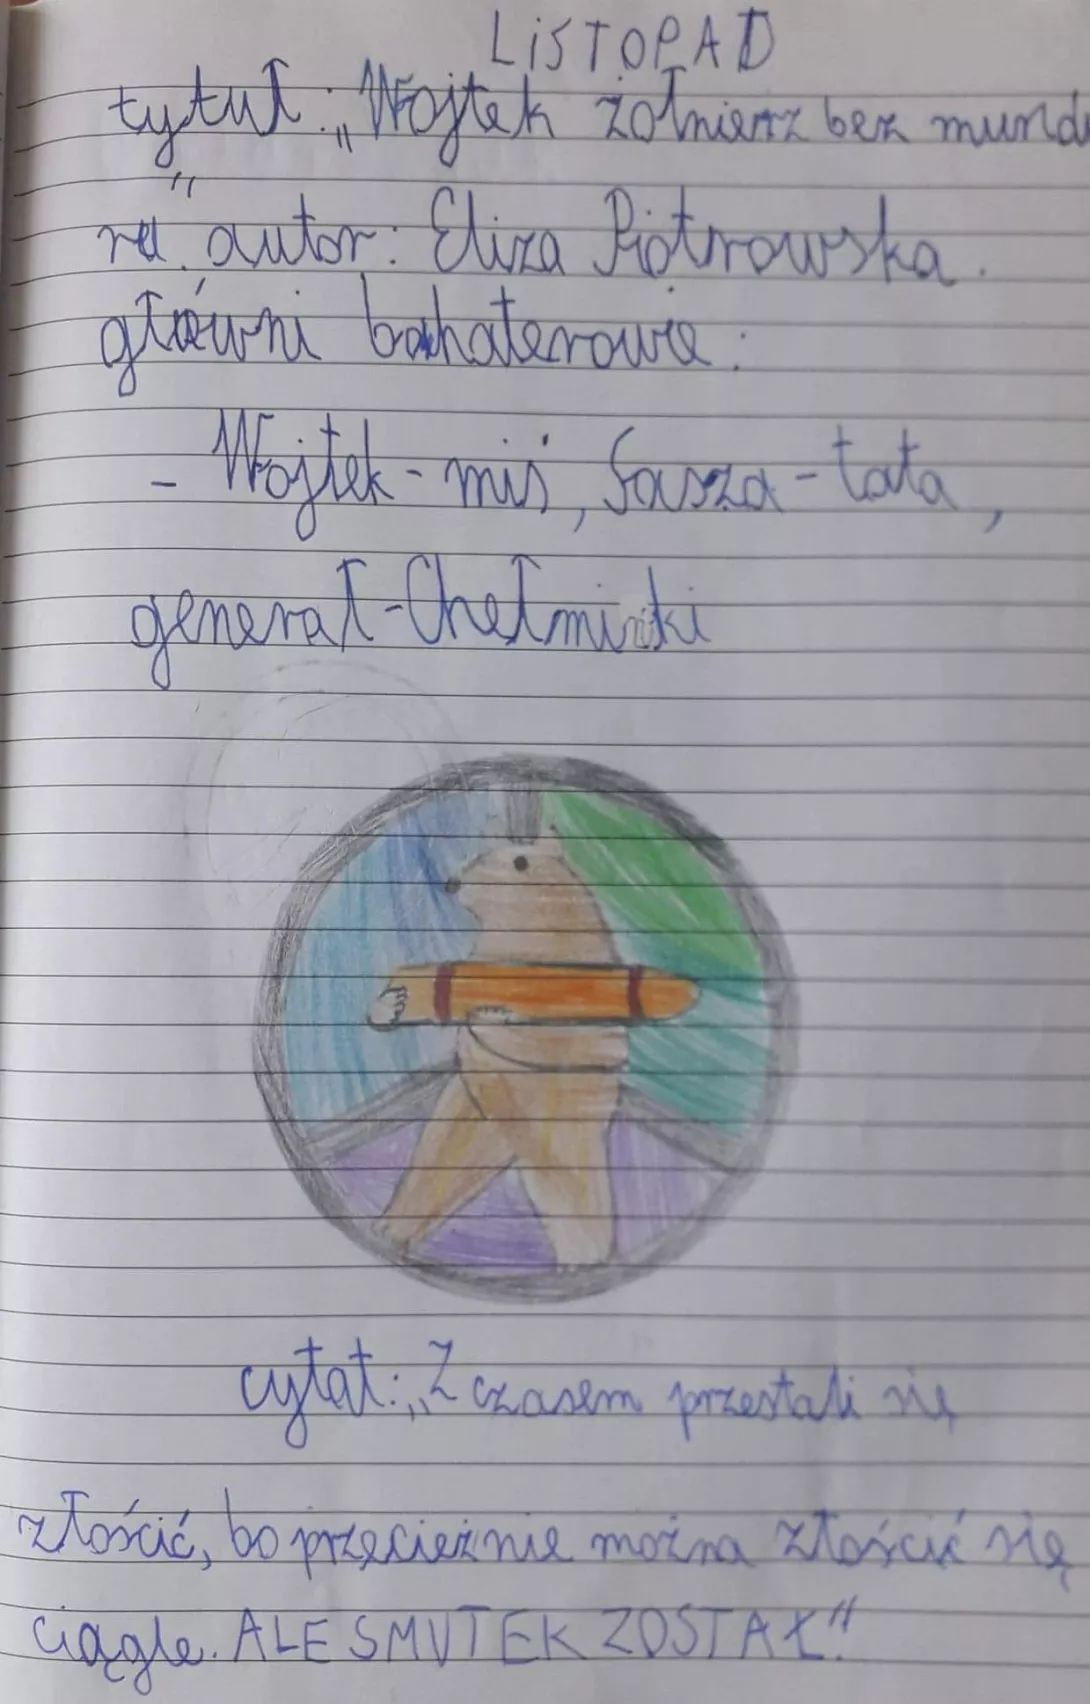 LiSTOPAD
tytuł: „Wojtek żołnierz bez mundu
ru" autor: Eliza Piotrowska.
główni bohaterowie:
- Wojtek - miś, Sasza - tata,
generał - Chełmiński
cytat: „Z czasem przestali się
złościć, bo przecież nie można złościć się
ciągle. ALE SMUTEK ZOSTAŁ".